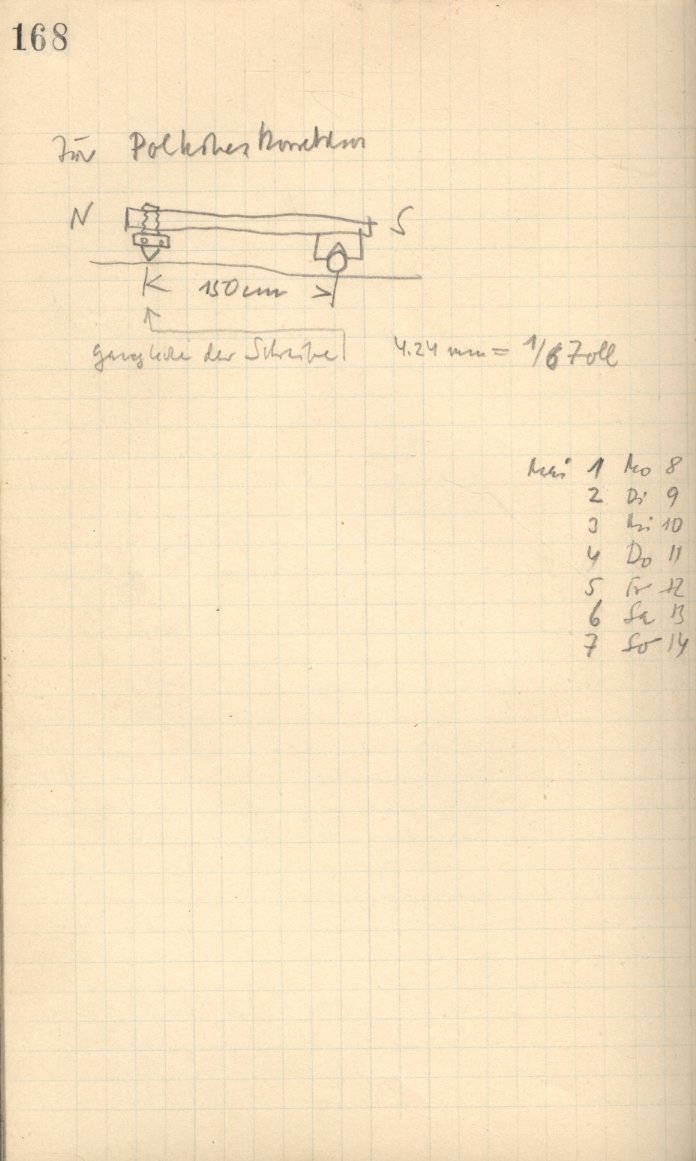 168
Für Polhöhes Korrektur
N S
150 cm
Ganghöhe der Schraube 4.24 mm = 1/6 Zoll
Mai 1 Mo 8
2 Di 9
3 Mi 10
4 Do 11
5 Fr 12
6 Sa 13
7 So 14